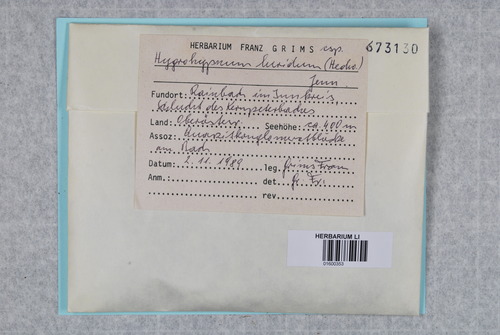 HERBARIUM FRANZ GRIMS c.sp. 673130
Hygrohypnum luridum (Hedw.)
Jenn.
Fundort: Rainbach im Innkreis,
Schlucht des Kenzelerbaches
Land: Oberösterr. Seehöhe: ca. 400 m
Assoz: Quarzitkonglomeratblöcke
am Bach
Datum: 2.11.1989 leg. Grims Franz
Anm.: det. Gr. Fr.
rev.
HERBARIUM LI
01600353